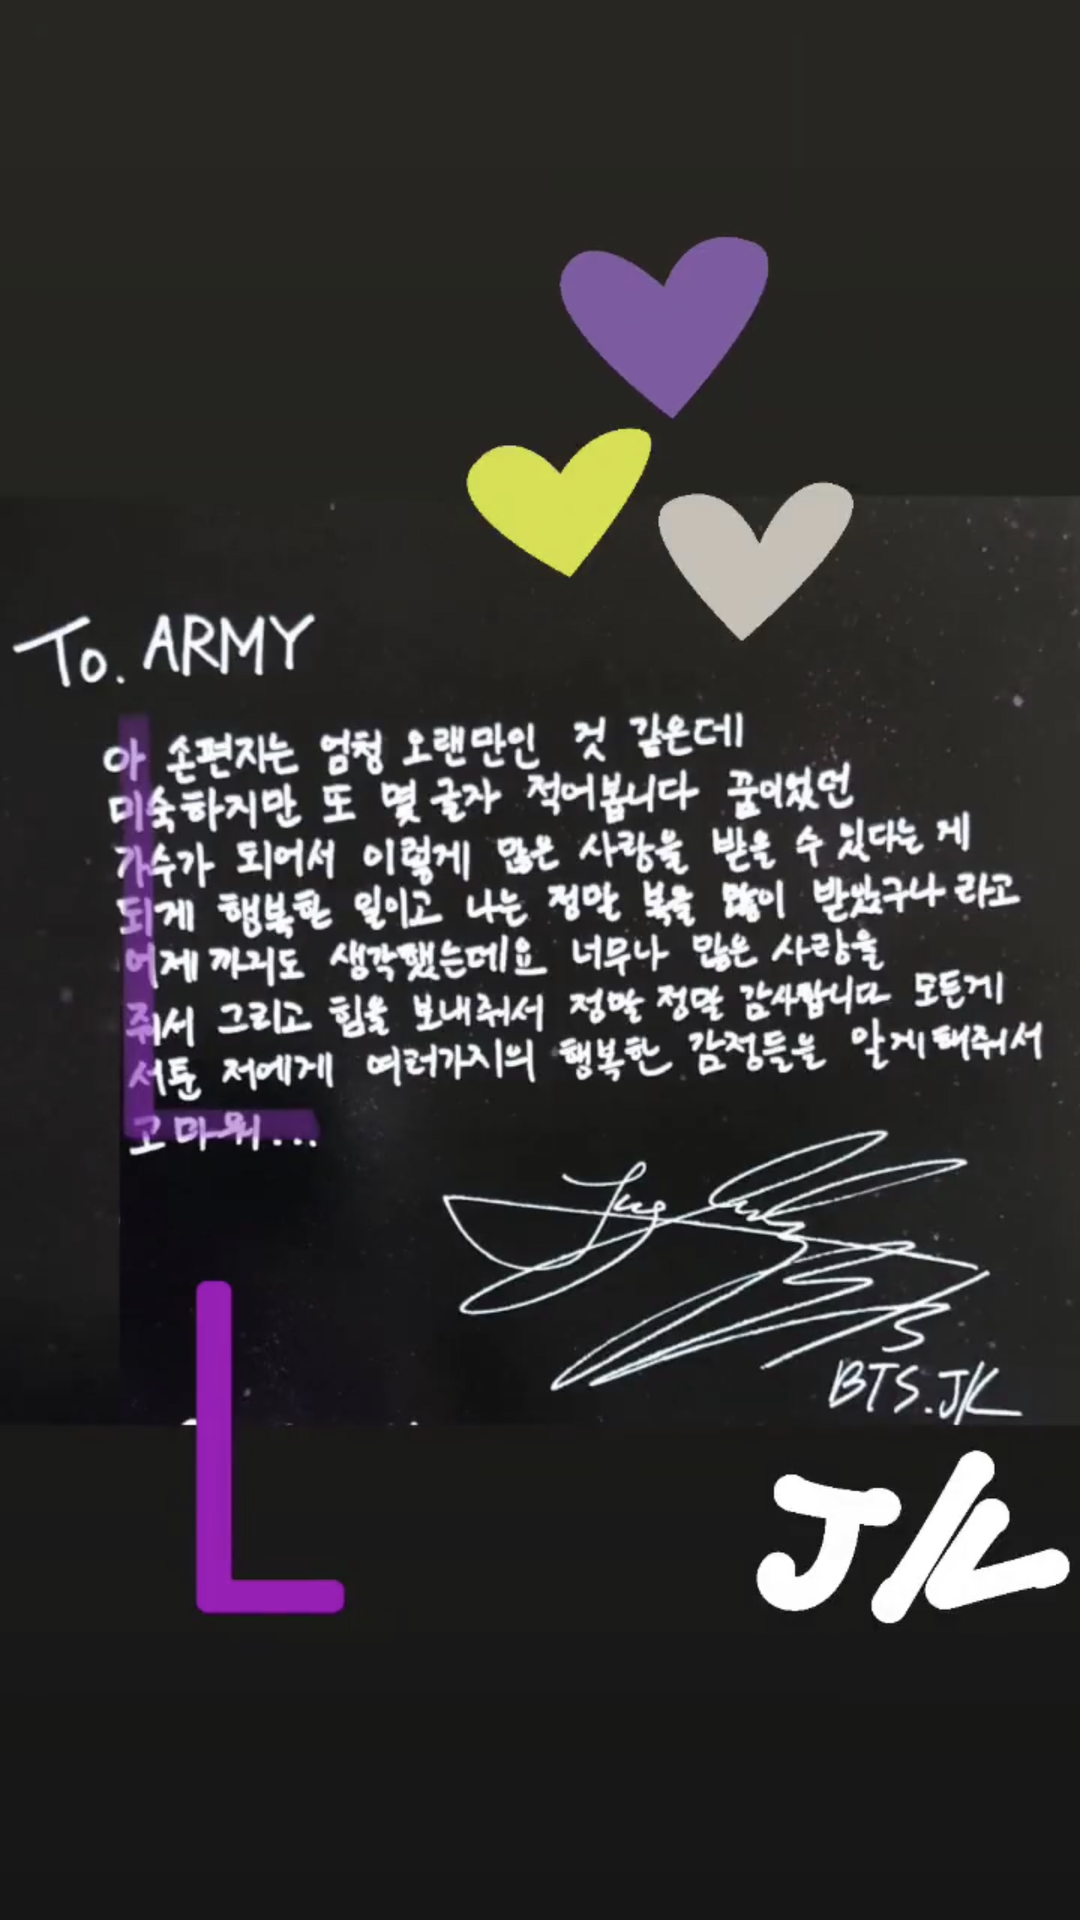 To. ARMY
아 손편지는 엄청 오랜만인 것 같은데
미숙하지만 또 몇 글자 적어봅니다 꿈이었던
가수가 되어서 이렇게 많은 사랑을 받을 수 있다는 게
되게 행복한 일이고 나는 정말 복을 많이 받았구나 라고
어제 까지도 생각했는데요 너무나 많은 사랑을
줘서 그리고 힘을 보내줘서 정말 정말 감사합니다 모든게
서툰 저에게 여러가지의 행복한 감정들을 알게해줘서
고마워...
BTS.JK
L
JK